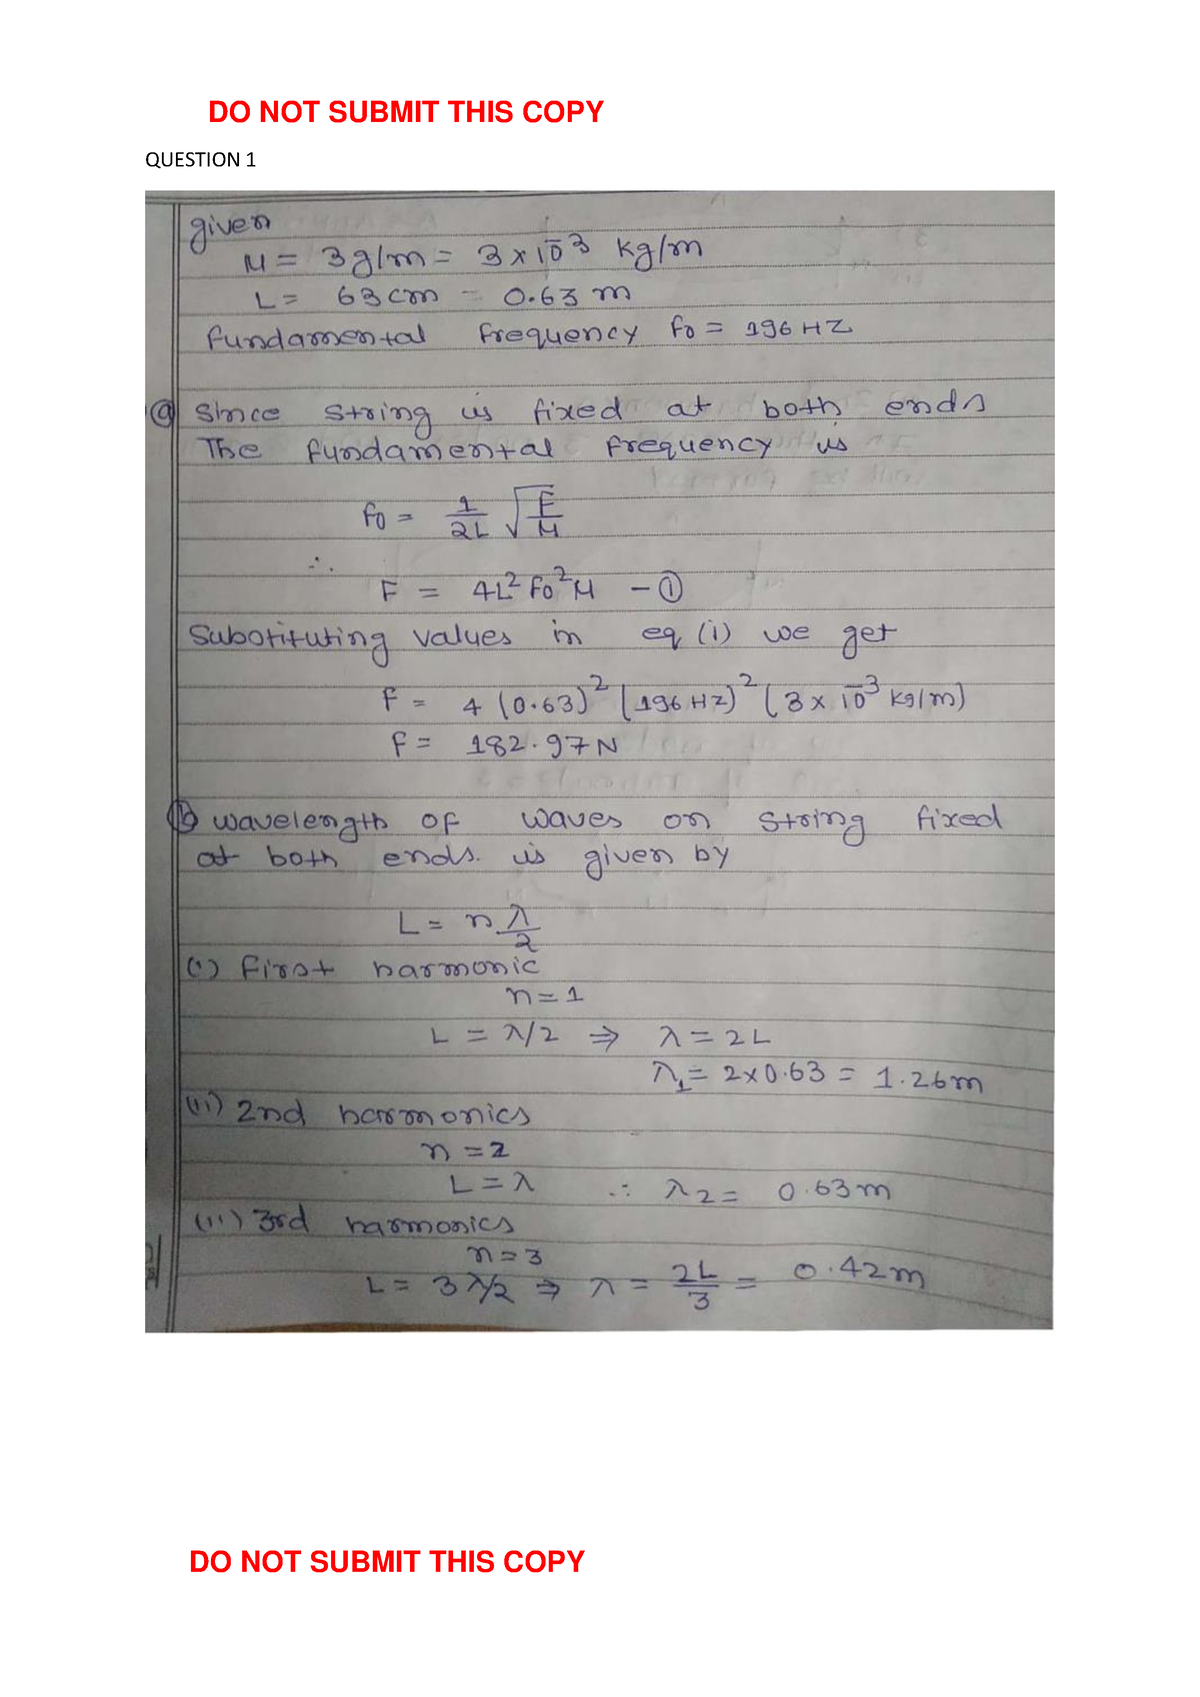 DO NOT SUBMIT THIS COPY
QUESTION 1
given
μ = 3g/m = 3×10⁻³ kg/m
L = 63cm = 0.63 m
fundamental frequency f₀ = 196 HZ
(a) Since string is fixed at both ends
The fundamental frequency is
f₀ = 1/2L √F/μ
∴
F = 4L² f₀² μ – ①
Substituting values in eq (i) we get
F = 4 (0.63)² (196 HZ)² (3 × 10⁻³ kg/m)
F = 182.97 N
(b) wavelength of waves on string fixed
at both ends. is given by
L = n λ/2
(i) first harmonic
n = 1
L = λ/2 ⇒ λ = 2L
λ₁ = 2×0.63 = 1.26m
(ii) 2nd harmonics
n = 2
L = λ ∴ λ₂ = 0.63m
(iii) 3rd harmonics
n = 3
L = 3λ/2 ⇒ λ = 2L/3 = 0.42m
DO NOT SUBMIT THIS COPY